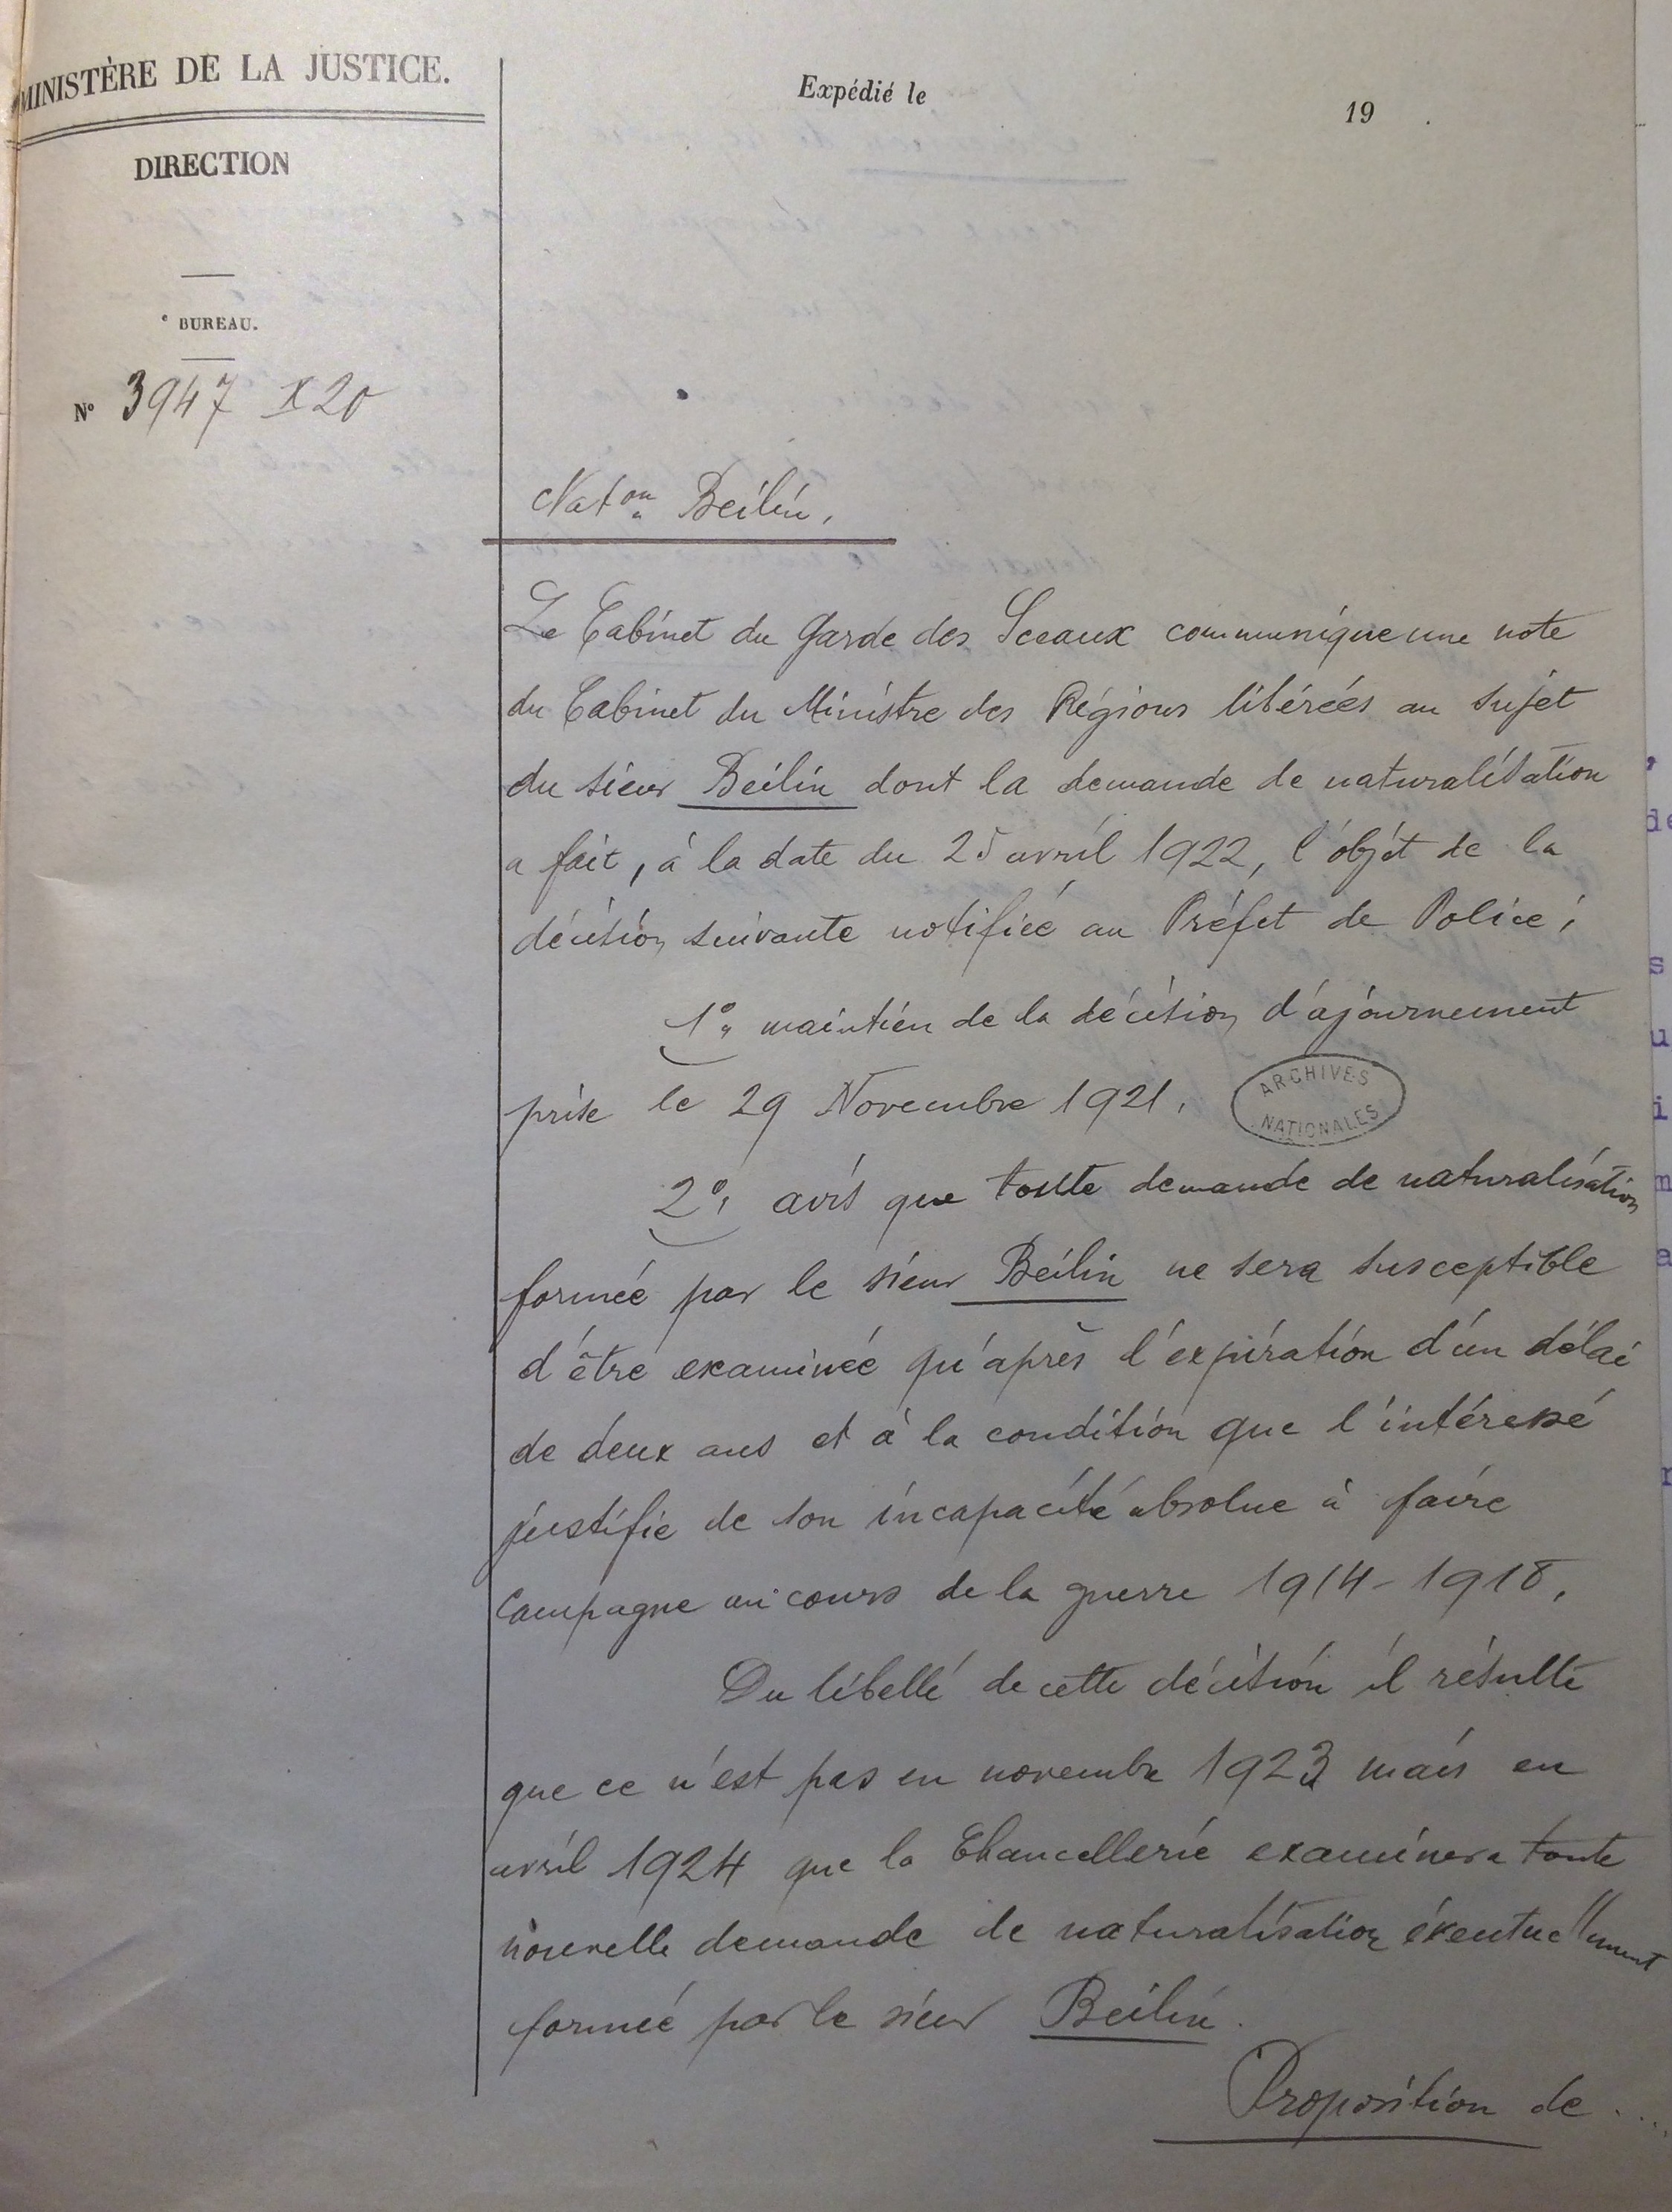 MINISTÈRE DE LA JUSTICE.
DIRECTION
e BUREAU.
N° 3947 X 20
Expédié le 19 .
Naton Beilin.
Le Cabinet du Garde des Sceaux communique une note
du Cabinet du Ministre des Régions libérées au sujet
du sieur Beilin dont la demande de naturalisation
a fait, à la date du 25 avril 1922, l'objet de la
décision suivante notifiée au Préfet de Police :
1° maintien de la décision d'ajournement
prise le 29 Novembre 1921.
ARCHIVES
NATIONALES
2° avis que toute demande de naturalisation
formée par le sieur Beilin ne sera susceptible
d'être examinée qu'après l'expiration d'un délai
de deux ans et à la condition que l'intéressé
justifie de son incapacité absolue à faire
campagne au cours de la guerre 1914-1918.
Du libellé de cette décision il résulte
que ce n'est pas en novembre 1923 mais en
avril 1924 que la Chancellerie examinera toute
nouvelle demande de naturalisation éventuellement
formée par le sieur Beilin.
Proposition de ....